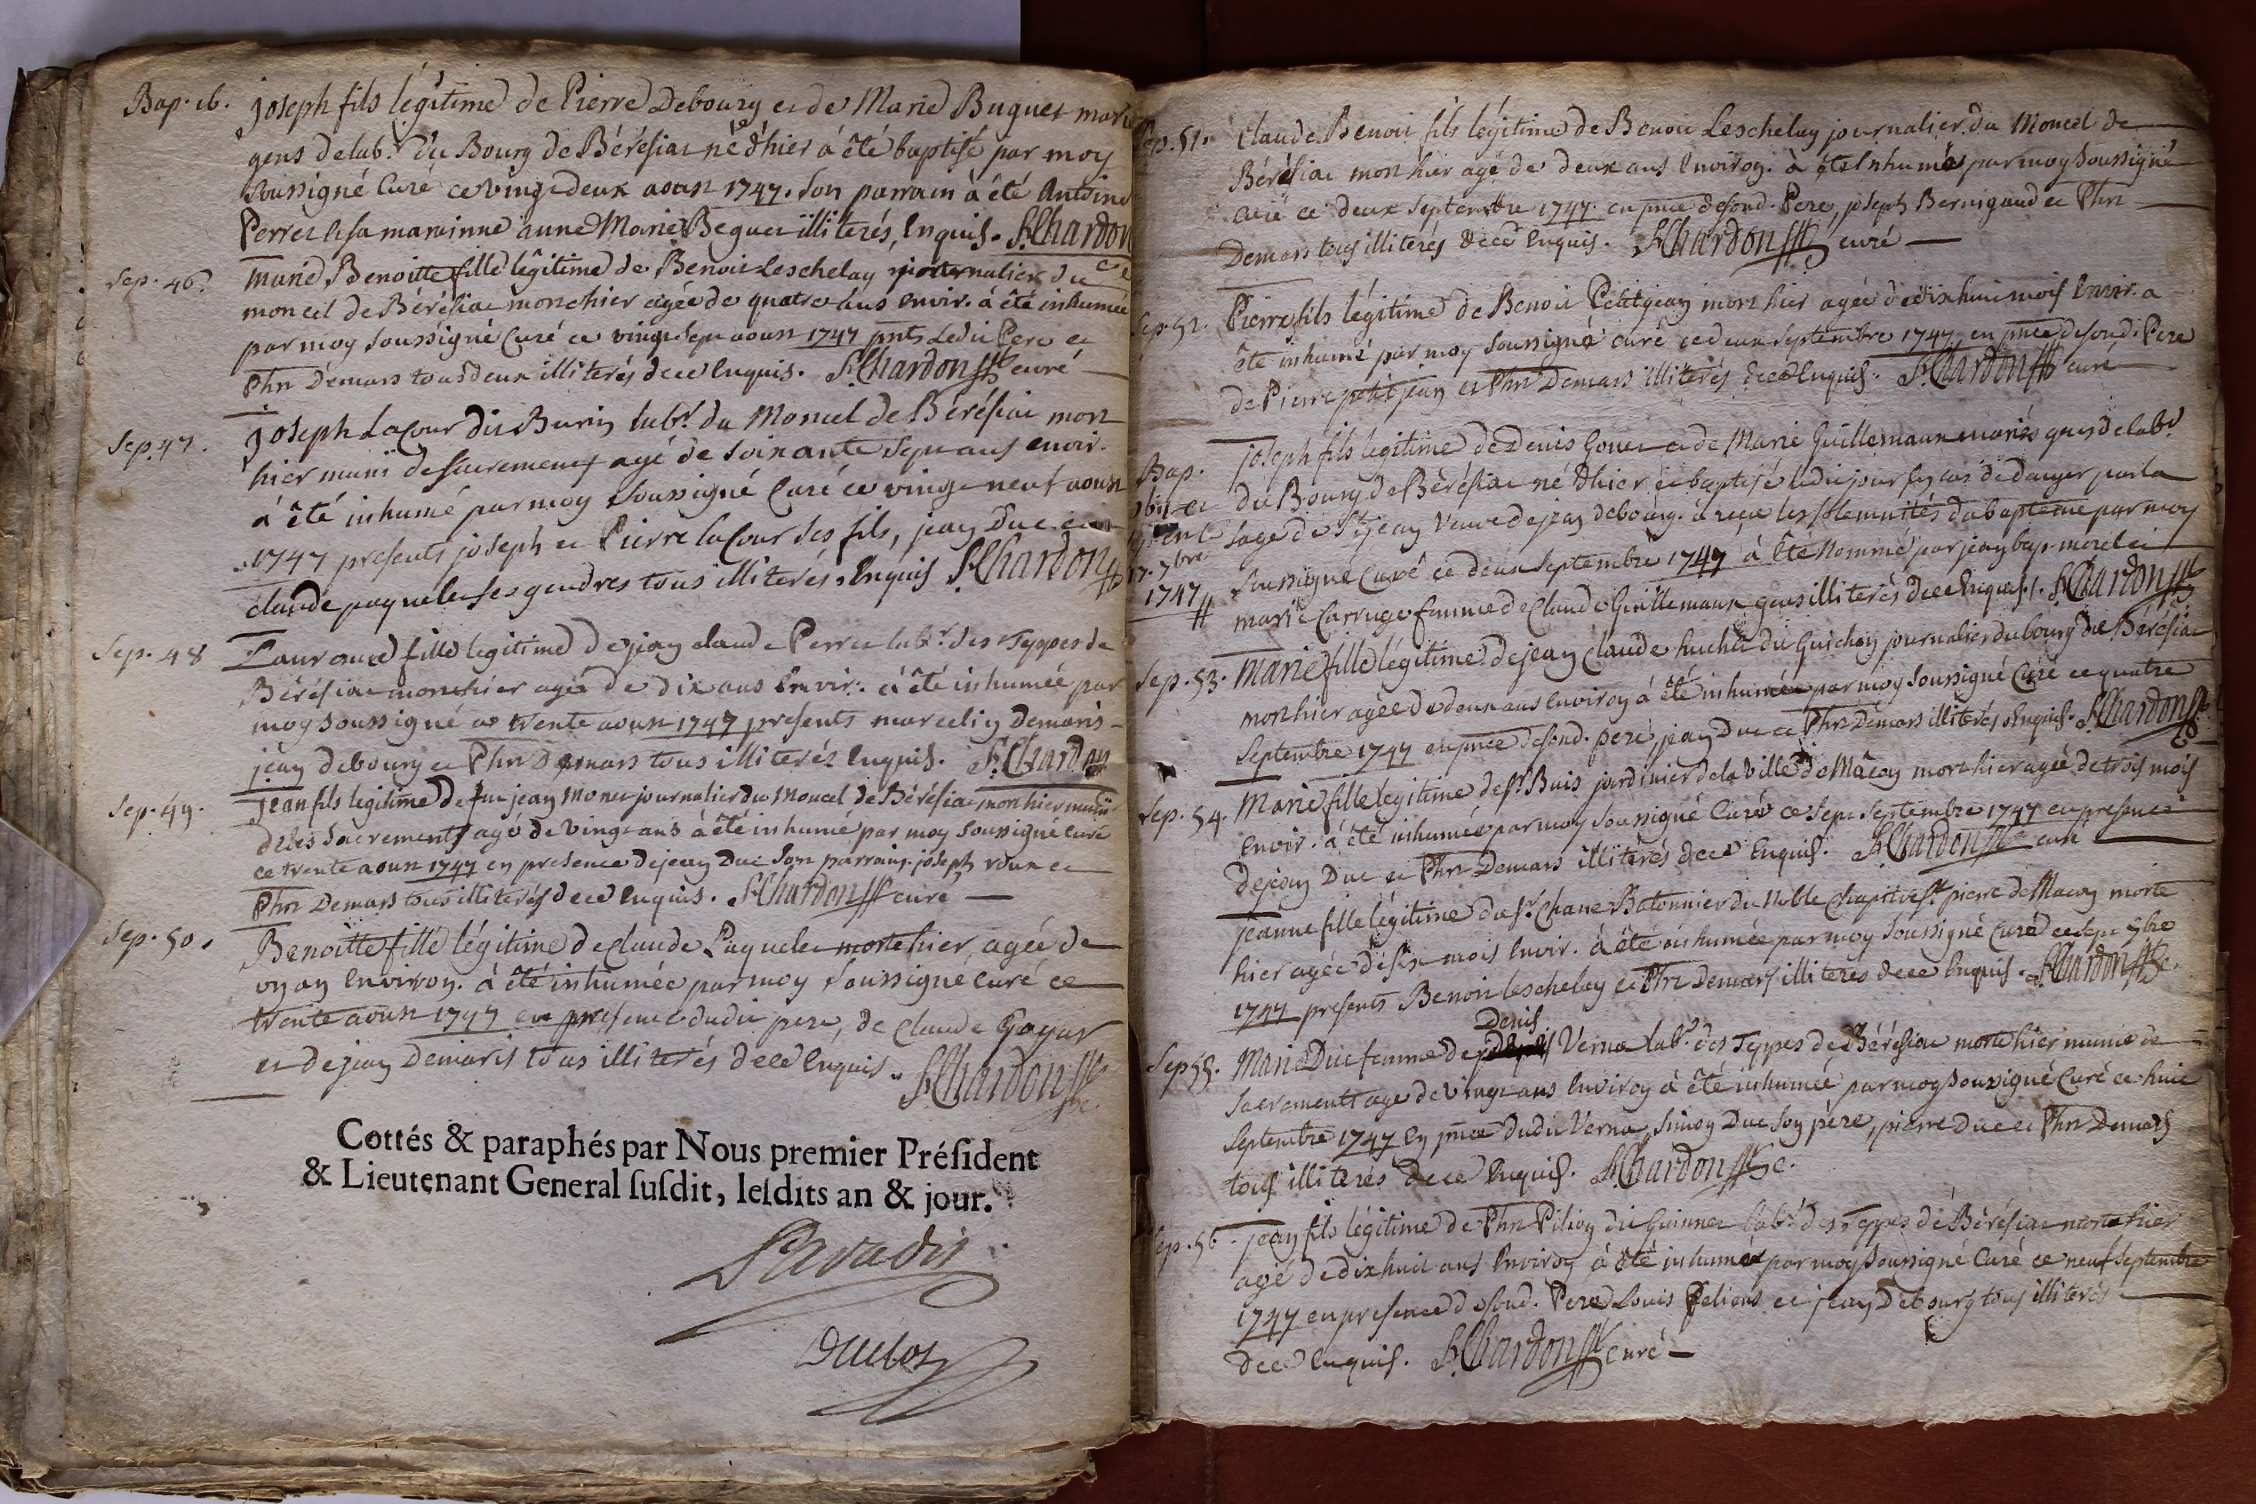 Bap. 16. joseph fils légitime de Pierre Debourg et de Marie Buguet mariés
gens de lab.r du Bourg de Bérésiat né d'hier à êté baptisé par moy
soussigné Curé ce vingt deux aoust 1747. Son parrain à été Antoine
Perret et sa marainne anne Marie Beguet illiterés, Enquis. Chardon
Sep. 46. Marie Benoitte fille lêgitime de Benoit Leschelay journalier du
moncel de Bérésiat morte hier agée de quatre ans envir. à êté inhumée
par moy soussigné Curé ce vingt sept aoust 1747 pnts Ledit Pere et
Phn Demars tous deux illiterés de ce Enquis. Chardon curé
Sep. 47. joseph LaCour dit Burin lab.r du Moncel de Bérésiat mort
hier muni de sacrements agé de soixante sept ans envir.
à êté inhumé par moy soussigné Curé ce vingt neuf aoust
1747 presents joseph et Pierre laCour ses fils, jean Duc et
claude paquelet ses gendres tous illiterés, Enquis Chardon
Sep. 48 Laurence fille legitime de jean claude Perret lab.r des Teppes de
Bérésiat morte hier agée de dix ans Envir. à êté inhumée par
moy soussigné ce trente aoust 1747 presents marcelin Demaris
jean debourg et Phn Demars tous illiterés Enquis. Chardon
Sep. 49. jean fils legitime de fut jean Monet journalier du Moncel de Bérésiat mort hier muni
de les Sacrements agé de vingt ans à êté inhumé par moy soussigné curé
ce trente aoust 1747 en presence de jean Duc son parrain, joseph roux et
Phn Demars tous illiterés de ce Enquis. Chardon curé
Sep. 50. Benoitte fille légitime de Claude Paquelet morte hier, agée de
un an Environ. à êté inhumée par moy soussigné curé ce
trente aoust 1747 en presence dudit pere, de claude Gayar
et de jean Demaris tous illiterés de ce Enquis. Chardon
Cottés & paraphés par Nous premier Président
& Lieutenant General susdit, lesdits an & jour.
Duclos
Sep. 51. Claude Benoit fils légitime de Benoit Leschelay journalier du Moncel de
Bérésiat mort hier agé de deux ans Environ. à êté Inhumé par moy soussigné
curé ce deux septembre 1747 en pnce desond. Pere, joseph Bernigaud et Phn
Demars tous illiterés de ce Enquis. Chardon curé
Sep. 52. Pierre fils légitime de Benoit Petitjean mort hier agée de dixhuit mois Envir. a
êté inhumé par moy soussigné curé ce deux septembre 1747 en pnce desond. Pere
de Pierre petitjean et Phn Demars illiterés de ce Enquis. Chardon curé
Bap. joseph fils legitime de Denis Gonet et de Marie Guillemaux mariés gens de lab.r
du Bourg de Bérésiat né d'hier et baptisé ledit jour en cas de danger par la
sage de St jean veuve de jean debourg. a reçu les solemnités du baptême par moy
17. 7bre soussigné Curé ce deux septembre 1747 à êté Nommé par jean bap. morel et
1747 marie Carruge femme de Claude Guillemaux gens illiterés de ce Enquis. Chardon
Sep. 53. Marie fille légitime de jean Claude huchet dit Guichon journalier du bourg de Bérésiat
mort hier agée de deux ans Environ à êté inhumée par moy soussigné Curé ce quatre
Septembre 1747 en pnce desond. pere, jean Duc et Phn Demars illiterés, Enquis. Chardon
Sep. 54. Marie fille legitime de Sr Buis jardinier de la Ville de Mâcon mort hier agée de trois mois
Envir. à êté inhumée par moy soussigné Curé ce sept Septembre 1747 en presence
de jean Duc et Phn Demars illiterés de ce Enquis. Chardon curé
jeanne fille légitime du Sr Chanet Batonnier du Noble chapitre St pierre de Macon morte
hier agée de six mois Envir. à êté inhumée par moy soussigné Curé ce sept 7bre
1747 presents Benoit leschelay et Phn Demars illiterés de ce Enquis. Chardon
Denis
Sep. 55. Marie Duc femme de Verne lab.r des Teppes de Bérésiat morte hier munie de
sacrements age de vingt ans Environ à êté inhumée par moy soussigné Curé ce huit
septembre 1747 En pnce dudit Verne, Simon Duc son pére, pierre Duc et Phn Demars
tous illiterés de ce Enquis. Chardon c.
Sep. 56. jean fils légitime de Phn Pilion dit Guinnet lab.r des Teppes de Bérésiat mort hier
agé de dixhuit ans Environ à êté inhumé par moy soussigné Curé ce neuf septembre
1747 en presence desond. Pere Louis Pelions et jean Debourg tous illiterés
de ce Enquis. Chardon curé